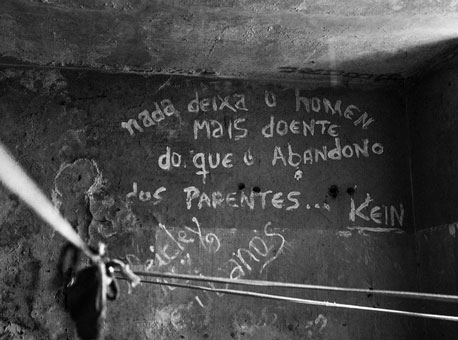 nada deixa o homem
mais doente
do que o Abandono
dos PARENTES... KEIN